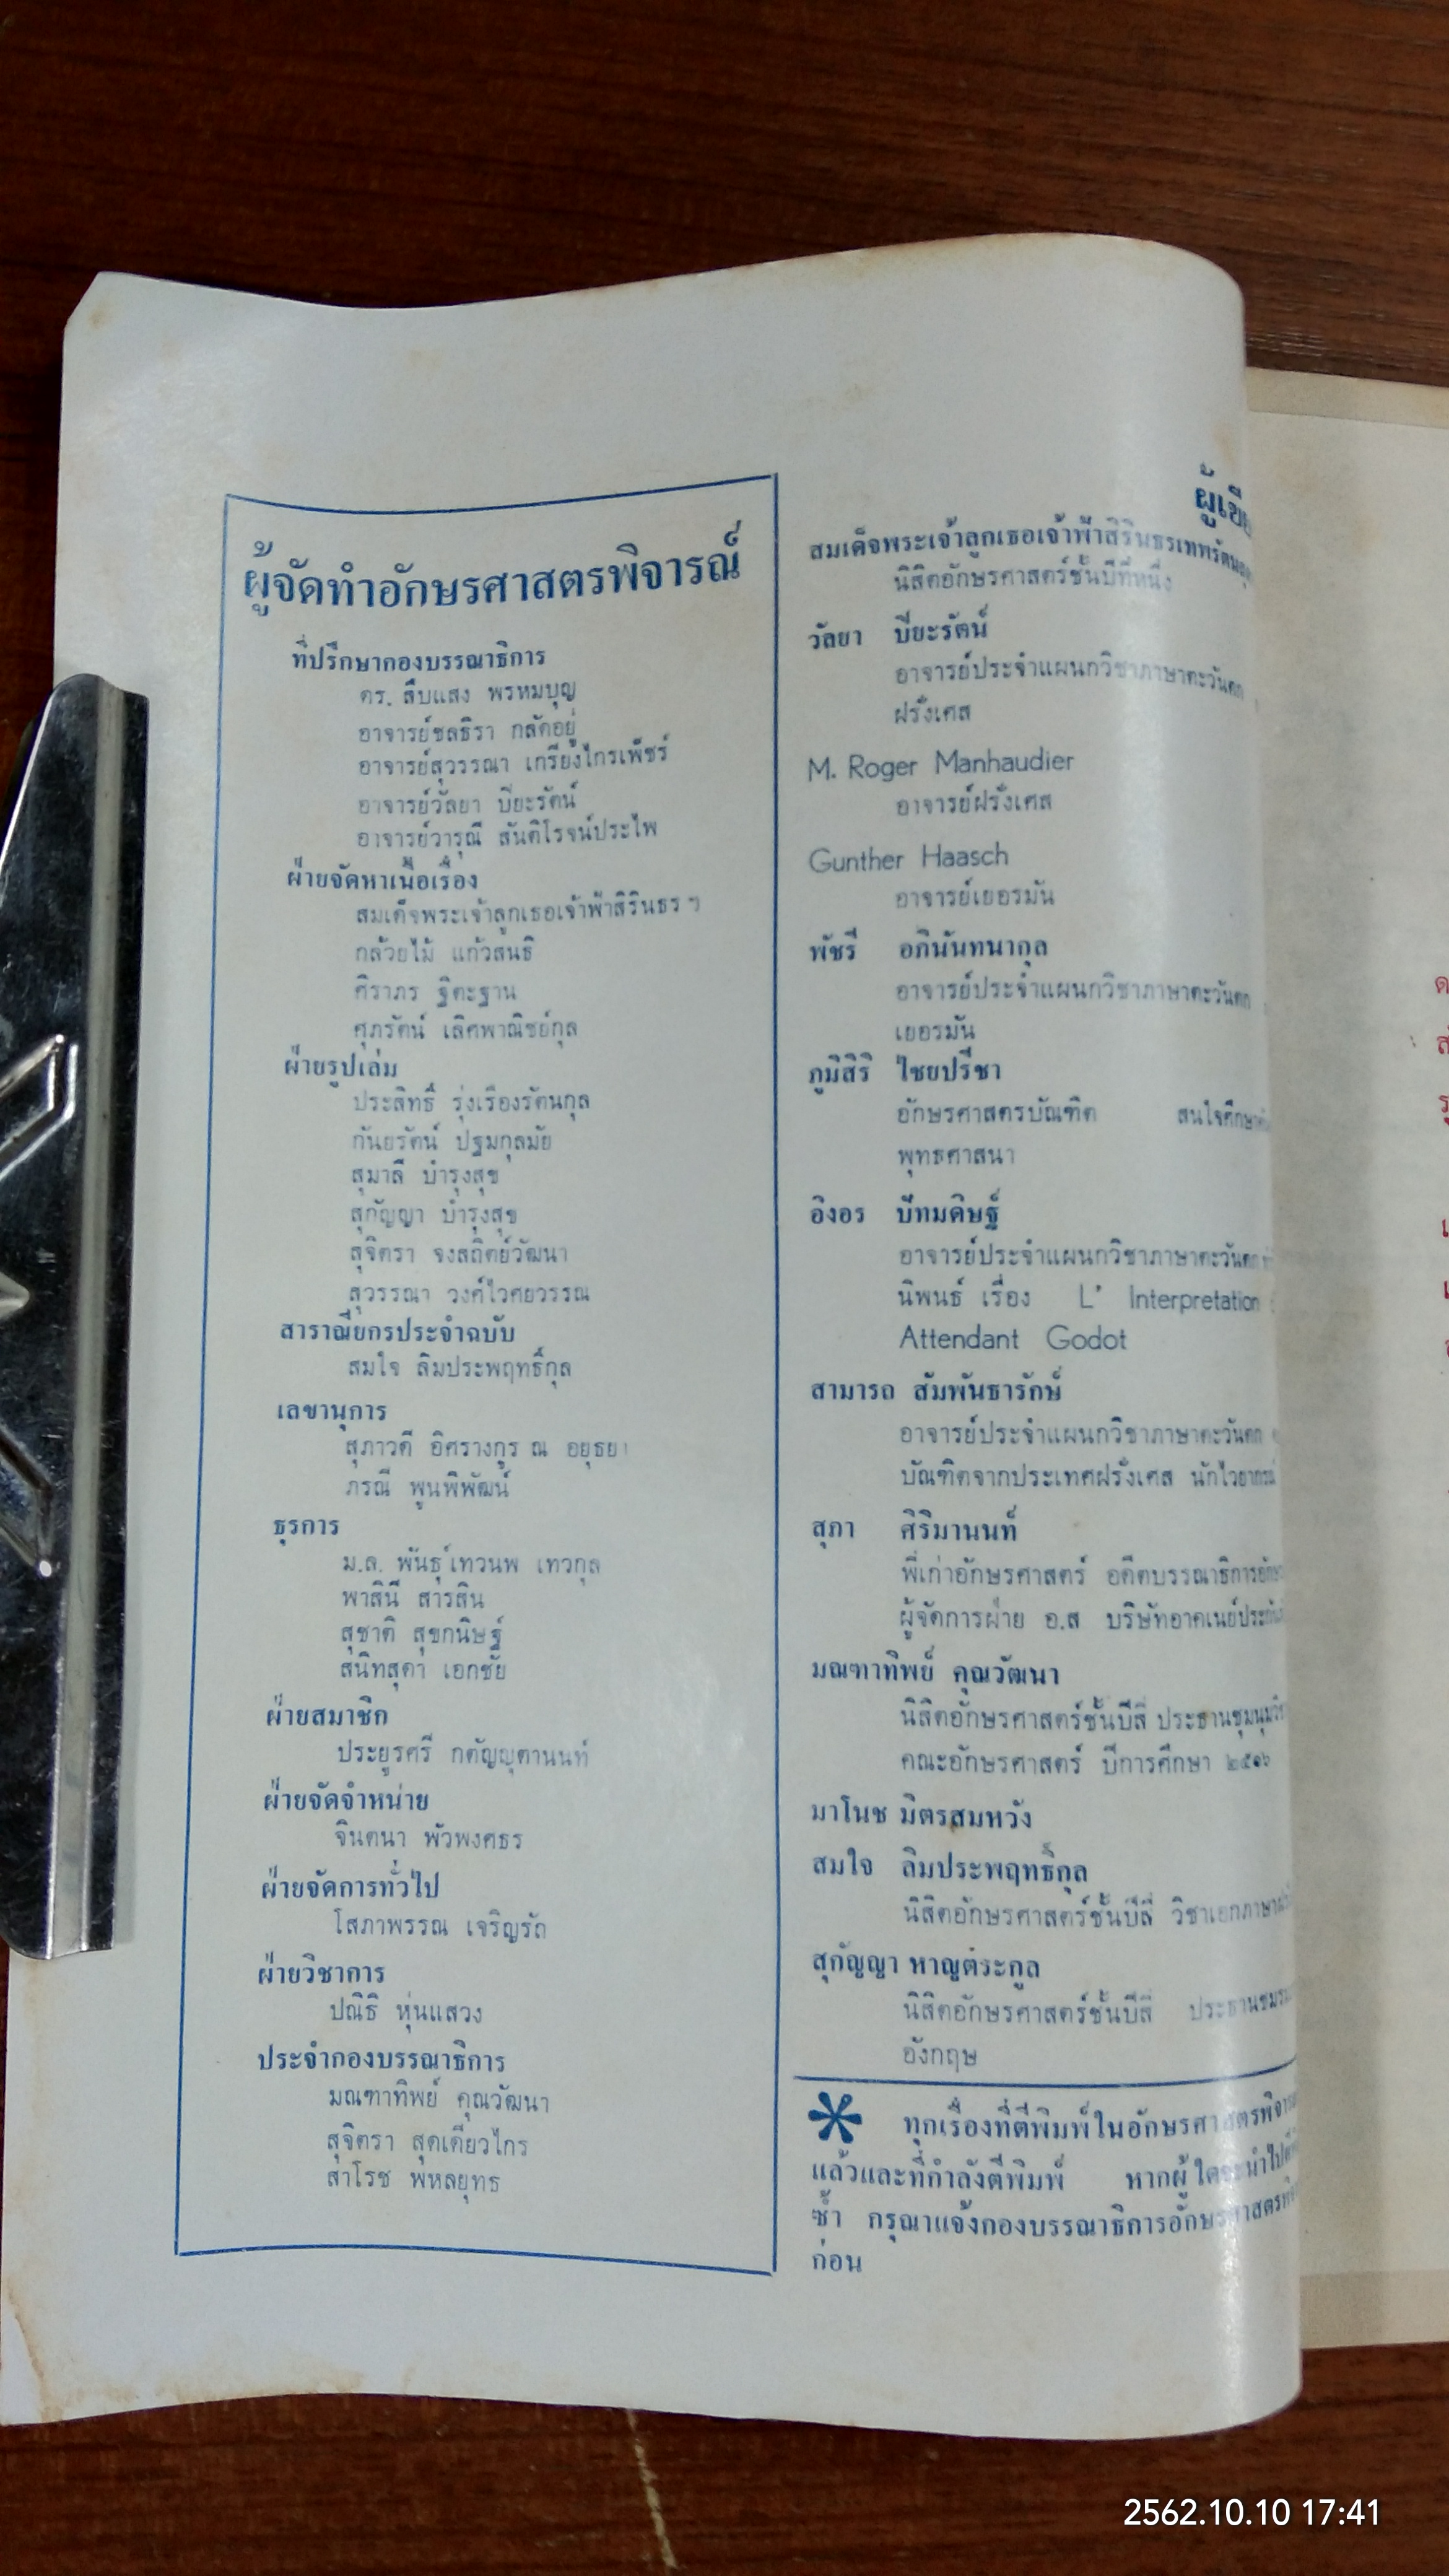 ผู้จัดทำอักษรศาสตรพิจารณ์
ที่ปรึกษากองบรรณาธิการ
ดร. สืบแสง พรหมบุญ
อาจารย์ชลธิรา กลัดอยู่
อาจารย์สุวรรณา เกรียงไกรเพ็ชร์
อาจารย์วัลยา ปิยะรัตน์
อาจารย์วารุณี สันติโรจน์ประไพ
ฝ่ายจัดหาเนื้อเรื่อง
สมเด็จพระเจ้าลูกเธอเจ้าฟ้าสิรินธร ฯ
กล้วยไม้ แก้วสนธิ
ศิราภร ฐิตะฐาน
ศุภรัตน์ เลิศพาณิชย์กุล
ฝ่ายรูปเล่ม
ประสิทธิ์ รุ่งเรืองรัตนกุล
กันยรัตน์ ปฐมกุลมัย
สุมาลี บำรุงสุข
สุกัญญา บำรุงสุข
สุจิตรา จงสถิตย์วัฒนา
สุวรรณา วงศ์ไวศยวรรณ
สาราณียกรประจำฉบับ
สมใจ ลิมประพฤทธิ์กุล
เลขานุการ
สุภาวดี อิศรางกูร ณ อยุธยา
ภรณี พูนพิพัฒน์
ธุรการ
ม.ล. พันธุ์เทวนพ เทวกุล
พาสินี สารสิน
สุชาติ สุขกนิษฐ์
สนิทสุดา เอกชัย
ฝ่ายสมาชิก
ประยูรศรี กตัญญุตานนท์
ฝ่ายจัดจำหน่าย
จินตนา พัวพงศธร
ฝ่ายจัดการทั่วไป
โสภาพรรณ เจริญรัถ
ฝ่ายวิชาการ
ปณิธิ หุ่นแสวง
ประจำกองบรรณาธิการ
มณฑาทิพย์ คุณวัฒนา
สุจิตรา สุดเดียวไกร
สาโรช พหลยุทธ
ผู้เขี
สมเด็จพระเจ้าลูกเธอเจ้าฟ้าสิรินธรเทพรัตน
นิสิตอักษรศาสตร์ชั้นปีที่หนึ่ง
วัลยา ปิยะรัตน์
อาจารย์ประจำแผนกวิชาภาษาตะวันตก
ฝรั่งเศส
M. Roger Manhaudier
อาจารย์ฝรั่งเศส
Gunther Haasch
อาจารย์เยอรมัน
พัชรี อภินันทนากุล
อาจารย์ประจำแผนกวิชาภาษาตะวันตก
เยอรมัน
ภูมิสิริ ไชยปรีชา
อักษรศาสตรบัณฑิต สนใจศึกษา
พุทธศาสนา
อิงอร ปัทมดิษฐ์
อาจารย์ประจำแผนกวิชาภาษาตะวันตก
นิพนธ์ เรื่อง L' Interpretation
Attendant Godot
สามารถ สัมพันธารักษ์
อาจารย์ประจำแผนกวิชาภาษาตะวันตก
บัณฑิตจากประเทศฝรั่งเศส นักไวยากรณ์
สุภา ศิริมานนท์
พี่เก่าอักษรศาสตร์ อดีตบรรณาธิการ
ผู้จัดการฝ่าย อ.ส บริษัทอาคเนย์ประกัน
มณฑาทิพย์ คุณวัฒนา
นิสิตอักษรศาสตร์ชั้นปีสี่ ประธานชุมนุม
คณะอักษรศาสตร์ ปีการศึกษา ๒๕๑๖
มาโนช มิตรสมหวัง
สมใจ ลิมประพฤทธิ์กุล
นิสิตอักษรศาสตร์ชั้นปีสี่ วิชาเอกภาษา
สุกัญญา หาญตระกูล
นิสิตอักษรศาสตร์ชั้นปีสี่ ประธานชมรม
อังกฤษ
* ทุกเรื่องที่ตีพิมพ์ในอักษรศาสตรพิจารณ์
แล้วและที่กำลังตีพิมพ์ หากผู้ใดจะนำไป
ซ้ำ กรุณาแจ้งกองบรรณาธิการอักษรศาสตร
ก่อน
2562.10.10 17:41